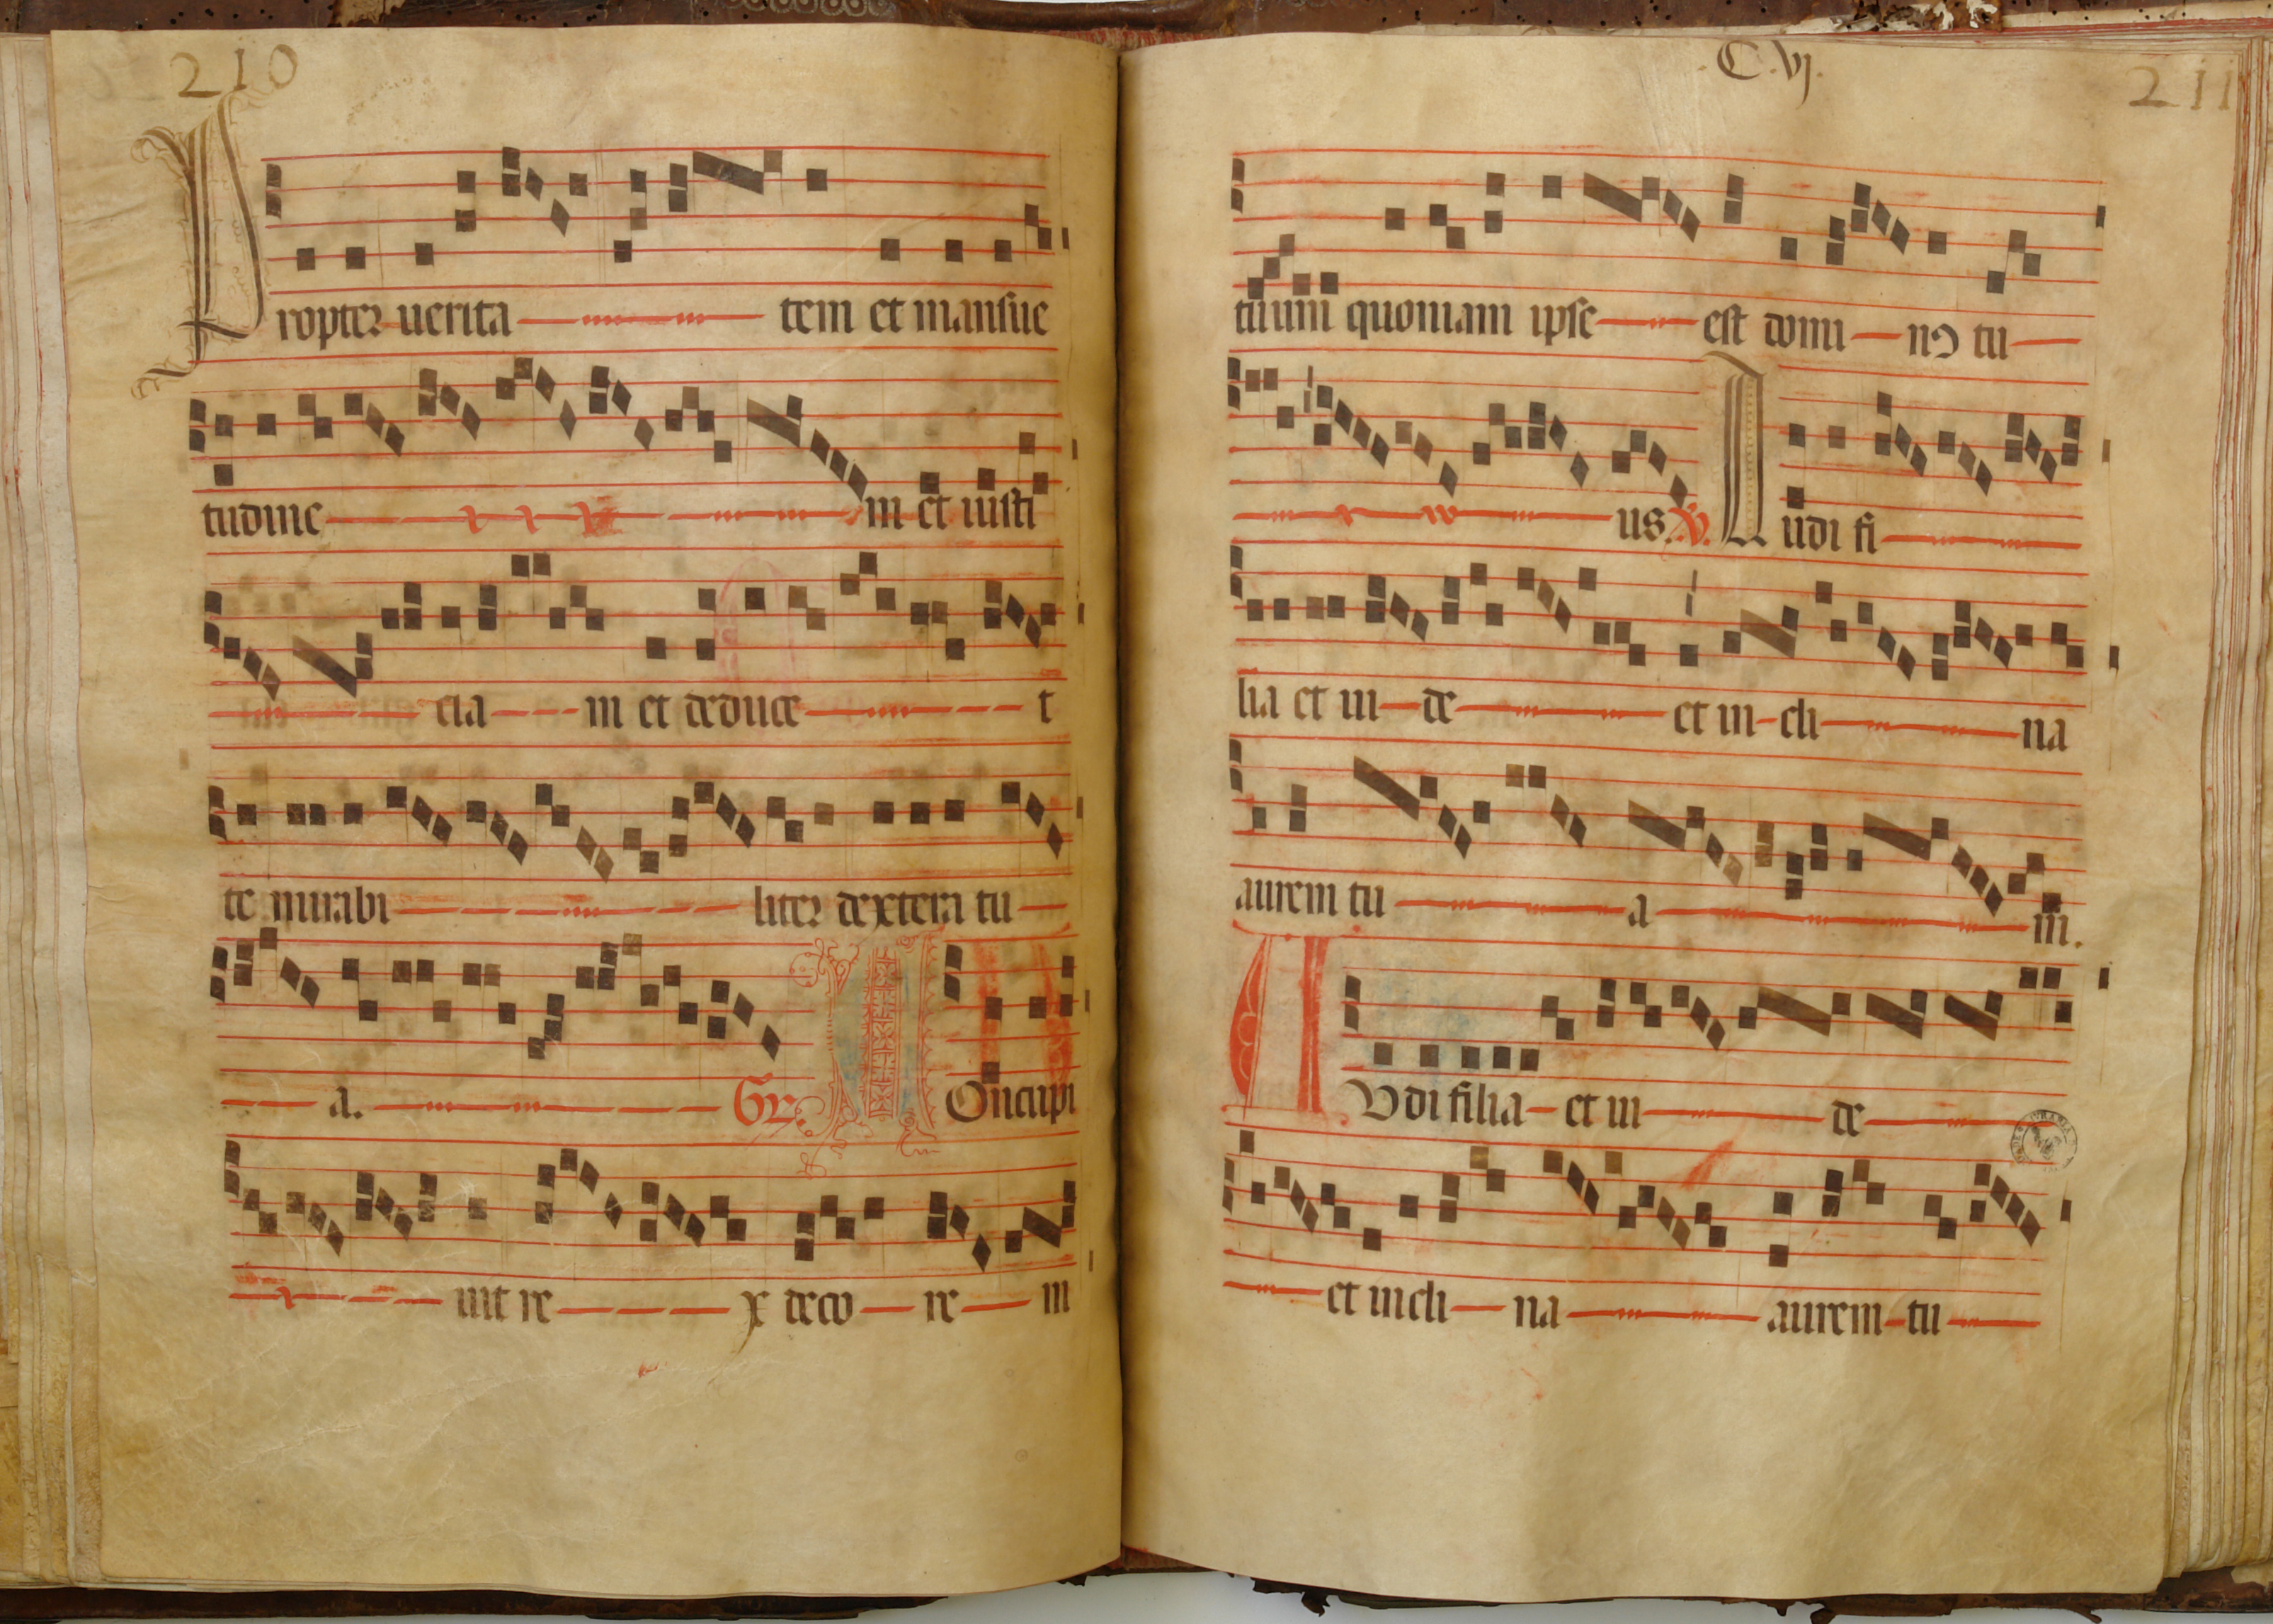 210
Propter uerita tem et mansue
tudine m et iusti
cia m et deduce t
te mirabi liter dextera tu
a. Gr Concupi
uit re x deco re m
C.vj.
211
tuum quoniam ipse est domi nꝯ tu
us. V. Audi fi
lia et ui de et in cli na
aurem tu a m.
AUdi filia et ui de
et incli na aurem tu